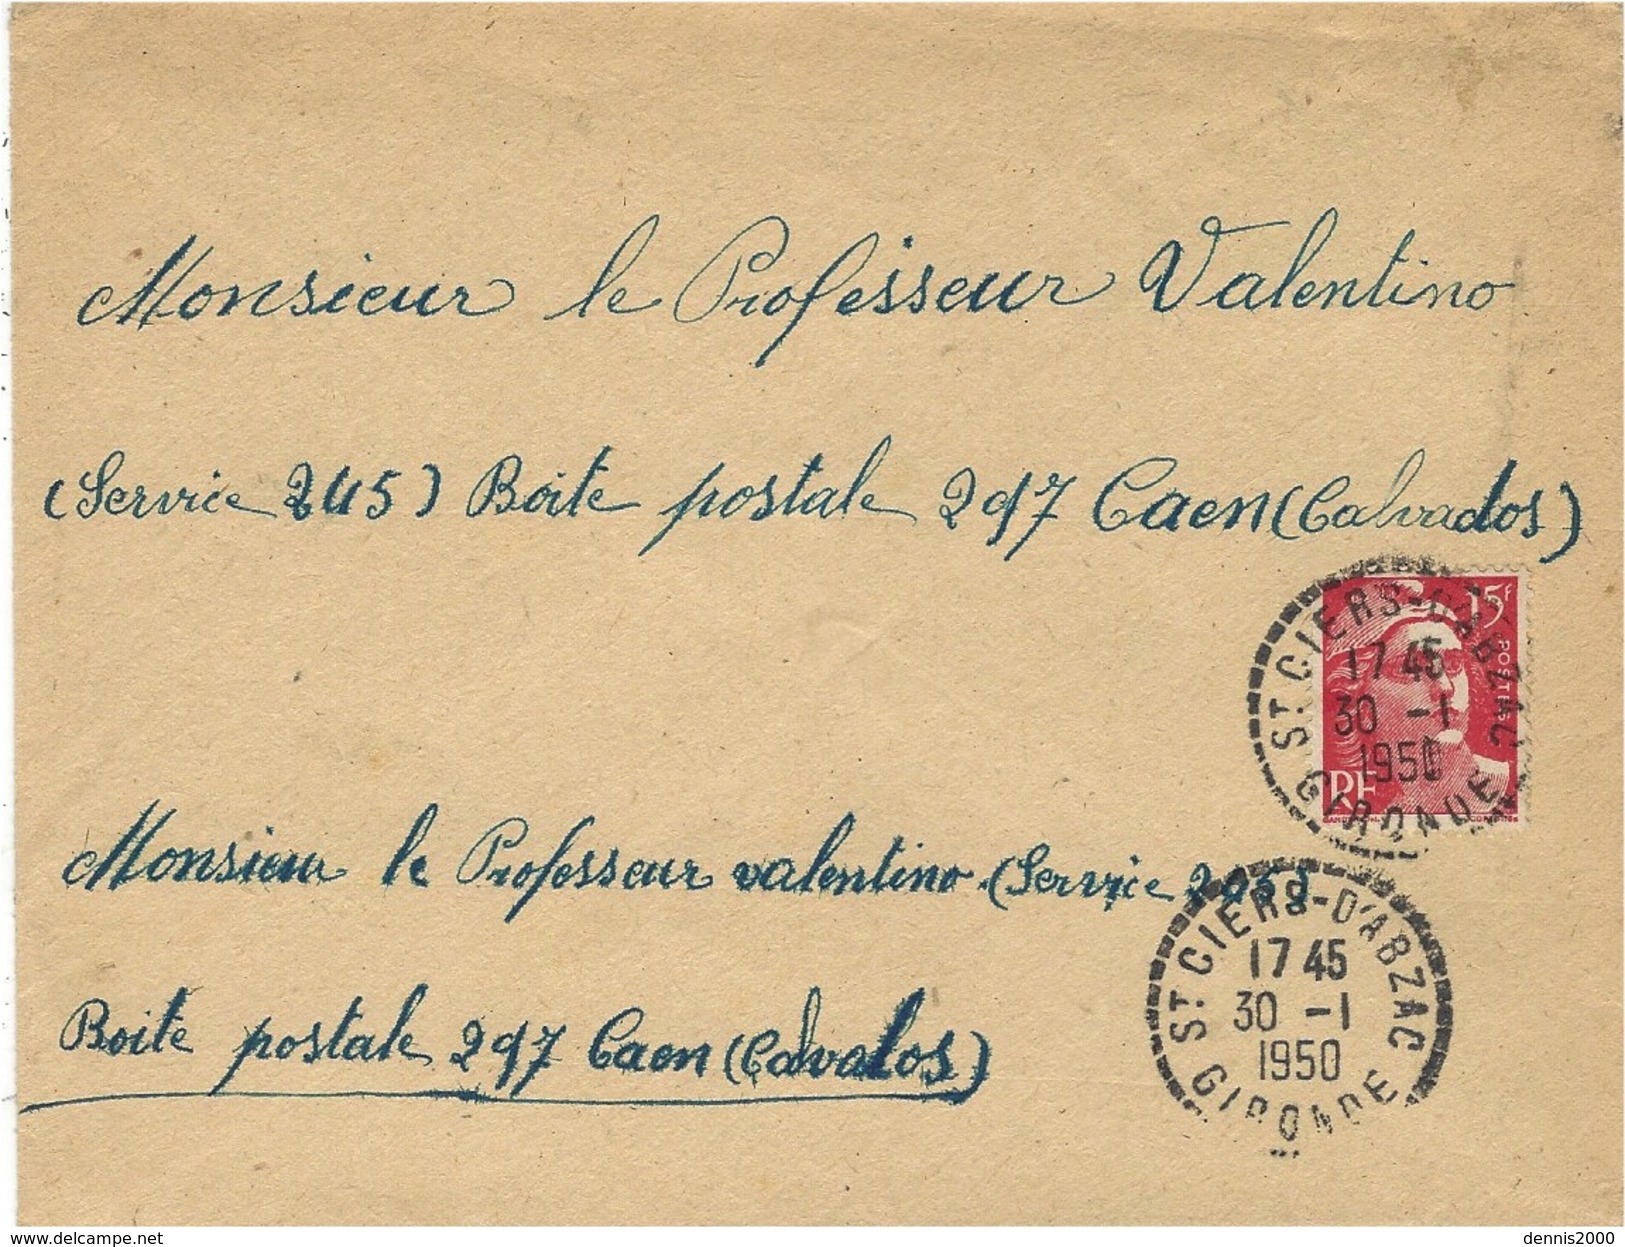 Monsieur le Professeur Valentino
(Service 245) Boite postale 297 Caen (Calvados)
15F
POSTES
RF
ST CIERS-D'ABZAC
17 45
30 -1
1950
GIRONDE
Monsieur le Professeur valentino (Service 245)
Boite postale 297 Caen (Calvados)
ST CIERS-D'ABZAC
17 45
30 -1
1950
GIRONDE
delcampe.net
dennis2000